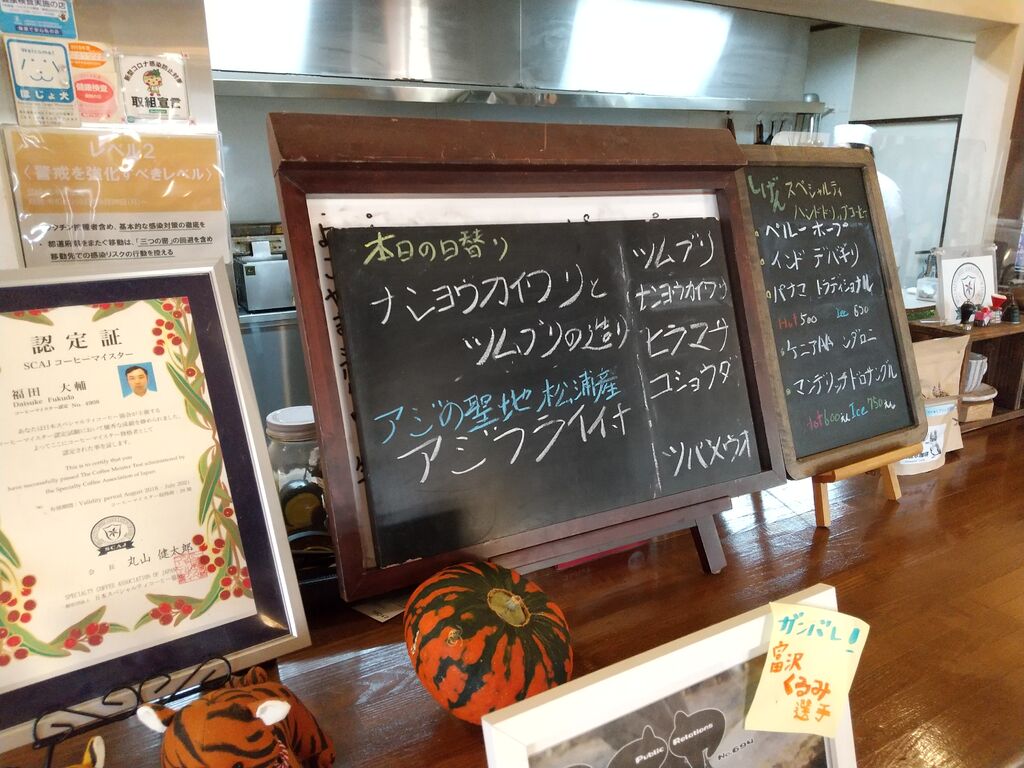 Welcome!
ほじょ犬
健康検査
新型コロナ感染防止対策
取組宣言
レベル2
〈警戒を強化すべきレベル〉
ワクチン接種者含め、基本的な感染対策の徹底を
都道府県をまたぐ移動は、「三つの密」の回避を含め
移動先での感染リスクの行動を控える
認定証
SCAJコーヒーマイスター
福田 大輔
Daisuke Fukuda
コーヒーマイスター認定 No. 4908
This is to certify that you
have successfully passed The Coffee Meister Test administered by
the Specialty Coffee Association of Japan
Validity period August 2018 - July 2021
SCAJ
会長 丸山 健太郎
SPECIALTY COFFEE ASSOCIATION OF JAPAN
一般社団法人 日本スペシャルティコーヒー協会
本日の日替り
ナンヨウカイワリと
ツムブリの造り
アジの聖地 松浦産
アジフライ付
ツムブリ
ナンヨウカイワリ
ヒラマサ
コショウダイ
ツバメウオ
しげん スペシャルティ
ハンドドリップコーヒー
ペルー ホープ
インド デバギリ
パナマ トラディショナル
Hot 500 Ice 650
ケニアAA ンダロニ
マンデリン ドロサングル
Hot 600 Ice 750
ガンバレ!
富沢
くるみ
選手
Public Relations
No.694